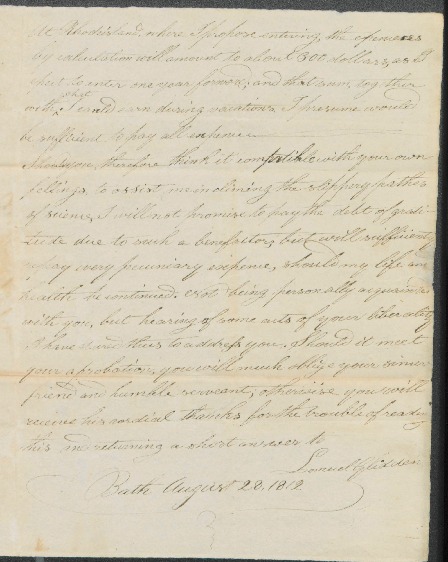 At Rhodeisland, where I propose entering, the expences
by calculation will amount to about 300 dollars, as I
expect to enter one year forward; and that sum, together
with what I could earn during vacations, I presume would
be sufficient to pay all expences
Should you, therefore think it compatible with your own
feelings, to assist me in climing the slippery paths
of science, I will not promise to pay the debt of grati-
tude due to such a benefactor, but will sufficiently
repay every pecuniary expense, should my life and
health be continued. Not being personally acquainted
with you, but hearing of some acts of your liberality
I have dared thus to address you. Should it meet
your aprobation, you will much oblige your sincere
friend and humble servant, otherwise you will
receive his cordial thanks for the trouble of reading
this and returning a short answer to
Samuel Glidden
Bath August 28. 1812.